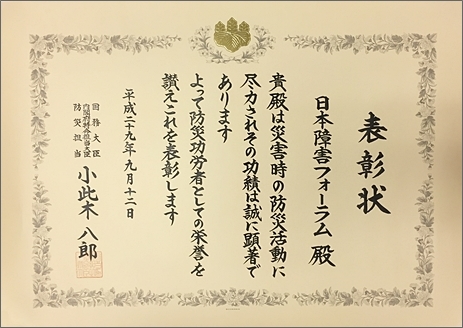 表彰状
日本障害フォーラム 殿
貴殿は災害時の防災活動に
尽力されその功績は誠に顕著で
あります
よって防災功労者としての栄誉を
讃えこれを表彰します
平成二十九年九月十二日
国務大臣
内閣府特命担当大臣
防災担当
小此木 八郎